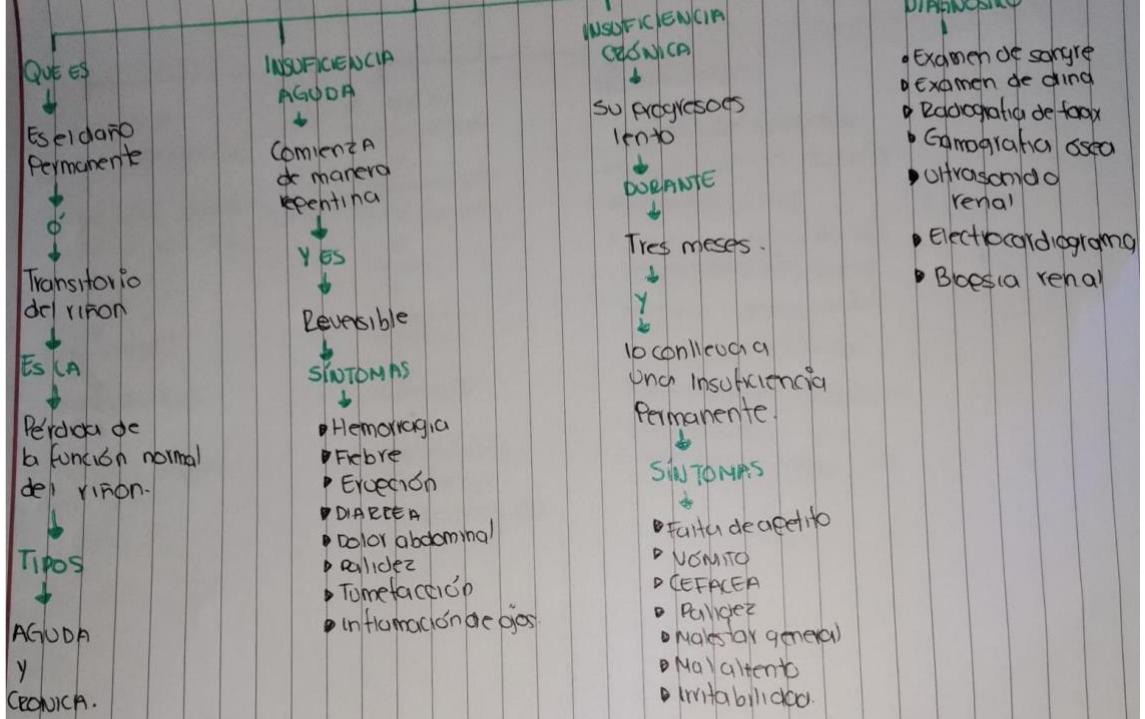 QUE ES
Es el daño
Permanente
Ó
Transitorio
del riñon
ES LA
Pérdida de
la función normal
del riñon.
TIPOS
AGUDA
y
CRONICA.
INSUFICIENCIA
AGUDA
Comienza
de manera
repentina
Y ES
Reversible
SÍNTOMAS
Hemorragia
Fiebre
Erupción
DIARREA
Dolor abdominal
Palidez
Tumefacción
inflamación de ojos
INSUFICIENCIA
CRÓNICA
Su progreso es
lento
DURANTE
Tres meses.
Y
lo conlleva a
una insuficiencia
Permanente.
SÍNTOMAS
Falta de apetito
VÓMITO
CEFACEA
Palidez
Malestar general
Mal aliento
Irritabilidad.
DIAGNOSTICO
Examen de sangre
Examen de
Radiografía de
Gamografia osea
Ultrasonido
renal
Electrocardiograma
Biopsia renal